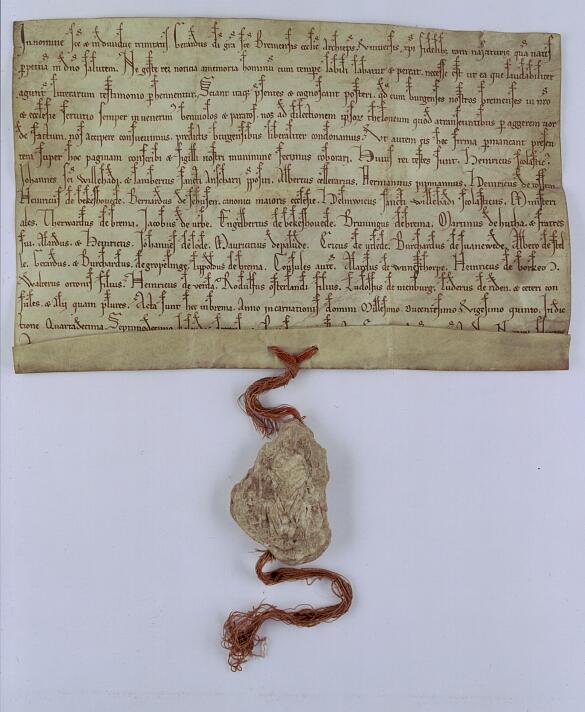 In nomine sce et individue trinitatis. Gerardus di gra sce Bremensis ecclie archieps. Universis xpi fidelibz tam natis qua nasci
ppetua in dno salute. Ne geste rei notica a memoria hominu cum tempe labili labatur et pereat. necesse est ut ea que laudabiliter
agunt. litterarum testimonio phennentur. Sciant itaqz psentes et cognoscant posteri. qd cum burgenses nostros bremenses in nro
et ecclesie servitio semper invenerim benivolos et paratos. nos ad dilectionem ipsor theloneum quod a transeuntibus p aggerem
de factum. pos accipere consuevimus. predictis burgensibus liberaliter condonamus. Ut autem hec firma pmaneant presen
tem super hoc paginam conscribi et sigilli nostri munimine fecimus roborari. Huius rei testes sunt. Heinricus scolastic.
Johannes sci Willehadi. et Lambertus sancti Anscharii ppositi. Albertus cellerarius. Hermannus pipmannus.
Heinricus de bekeshovede. Bernardus de canonici maioris ecclesie. Helmwicus sancti willehadi scolasticus. Ministeri
ales. Thetwardus de brema. Jacobus de urbe. Engelbertus de bekeshovede. Bruningus de brema. Martinus de hutha. et fratres
sui. Alardus. et Heinricus. Johannis de Mauricius Ericus de Burchardus de Albero de
le. Gerardus. et Burchardus. de gropelinge. lupoldus de brema. Consules aute. Alardus de Heinricus de borken
Walterus ottonis filius. Heinricus de verda. Rodolfus osterlandi filius. Ludolfus de nienburg. luderus de riden. et ceteri con
sules. et alii quam plures. Acta sunt hec in brema. Anno incarnationis domini Millesimo. Ducentesimo. Vigesimo quinto. Indic
tione Quartadecima. Septimodecimo